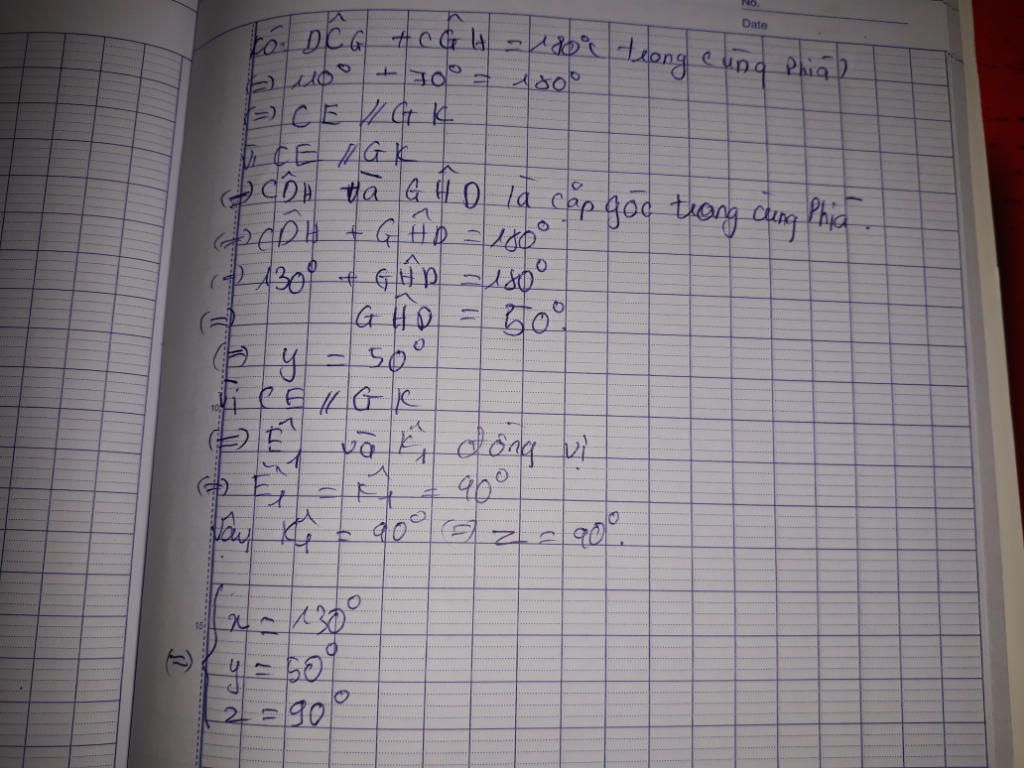 No.
Date
Có: DĈG + CĜH = 180° (trong cùng phía)
=> 110° + 70° = 180°
=> CE // GK
Vì CE // GK
=> CD̂H và GĤD là cặp góc trong cùng phía.
=> CD̂H + GĤD = 180°
=> 130° + GĤD = 180°
=> GĤD = 50°.
=> y = 50°
Vì CE // GK
=> Ê₁ và K̂₁ đồng vị
=> Ê₁ = K̂₁ = 90°
Vậy K̂₁ = 90° => z = 90°.
x = 130°
=> y = 50°
z = 90°